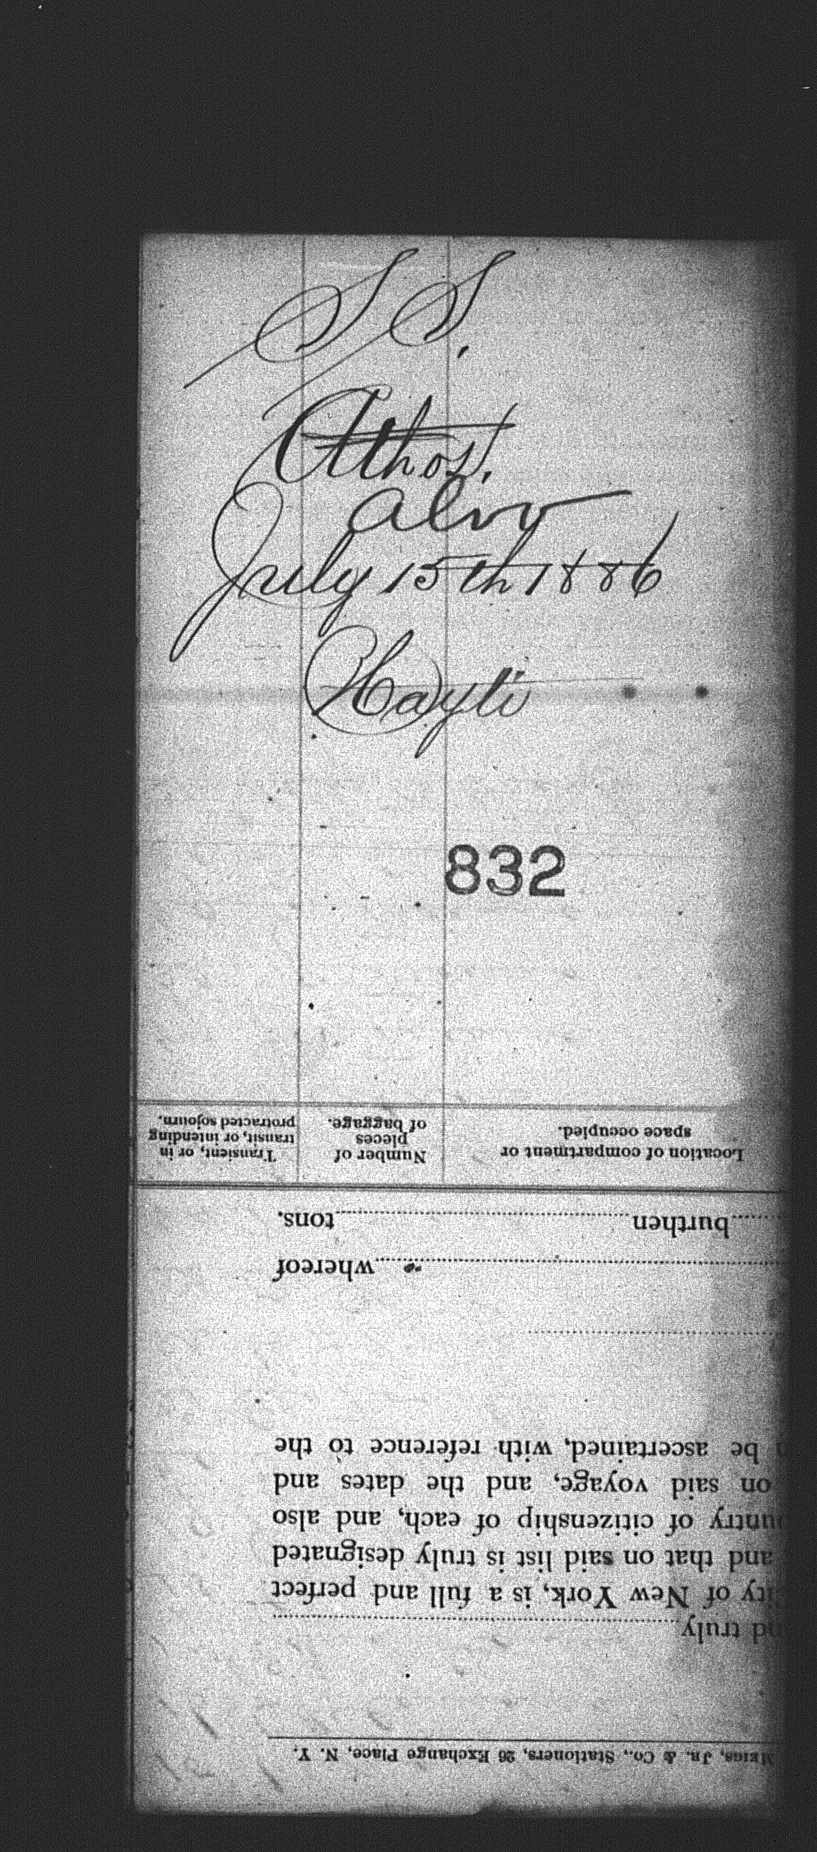 S S.
Athos.
alvo
July 15th 1886
Hayti
832
Transient, or in
transit, or intending
protracted sojourn.
Number of
pieces
of baggage.
Location of compartment or
space occupied.
burthen tons.
whereof
be ascertained, with reference to the
on said voyage, and the dates and
untry of citizenship of each, and also
and that on said list is truly designated
ity of New York, is a full and perfect
nd truly
Meigs, Jr. & Co., Stationers, 26 Exchange Place, N. Y.